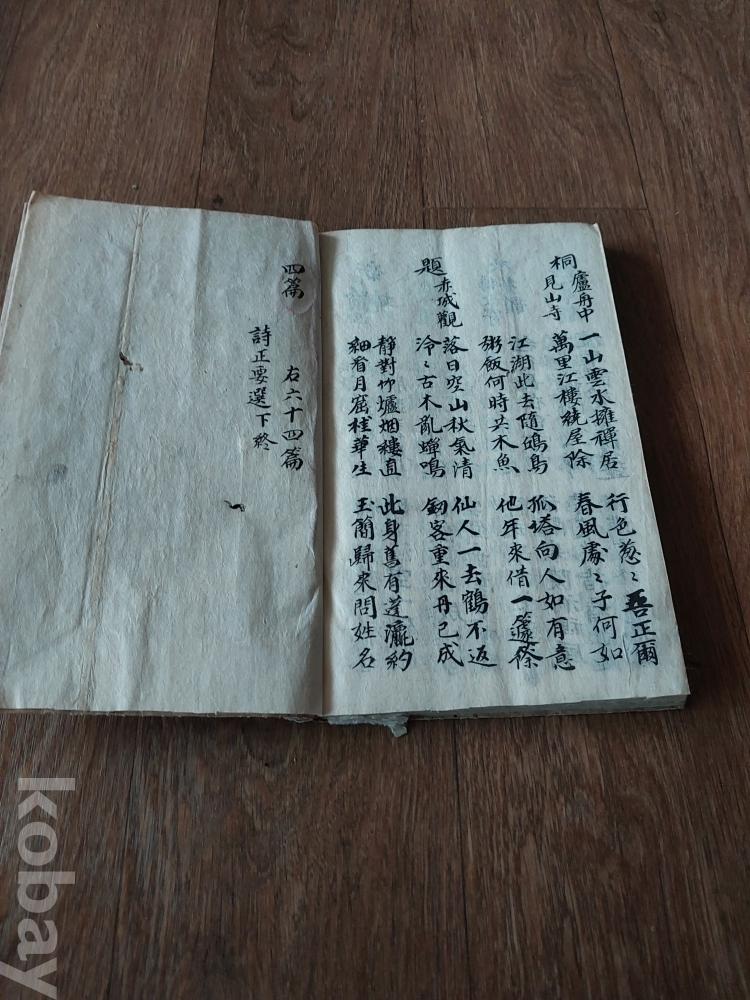 桐廬舟中見山寺
一山雲水擁禪居
萬里江樓繞屋除
行色怱〻吾正爾
春風處〻子何如
江湖此去隨鷗鳥
粥飯何時共木魚
孤塔向人如有意
他年來借一籧篨
題赤城觀
落日空山秋氣清
冷〻古木亂蟬鳴
仙人一去鶴不返
劒客重來丹已成
靜對竹爐烟縷直
細看月窟桂華生
此身舊有蓬瀛約
玉簡歸來問姓名
四篇 右六十四篇
詩正要選下終
kobay